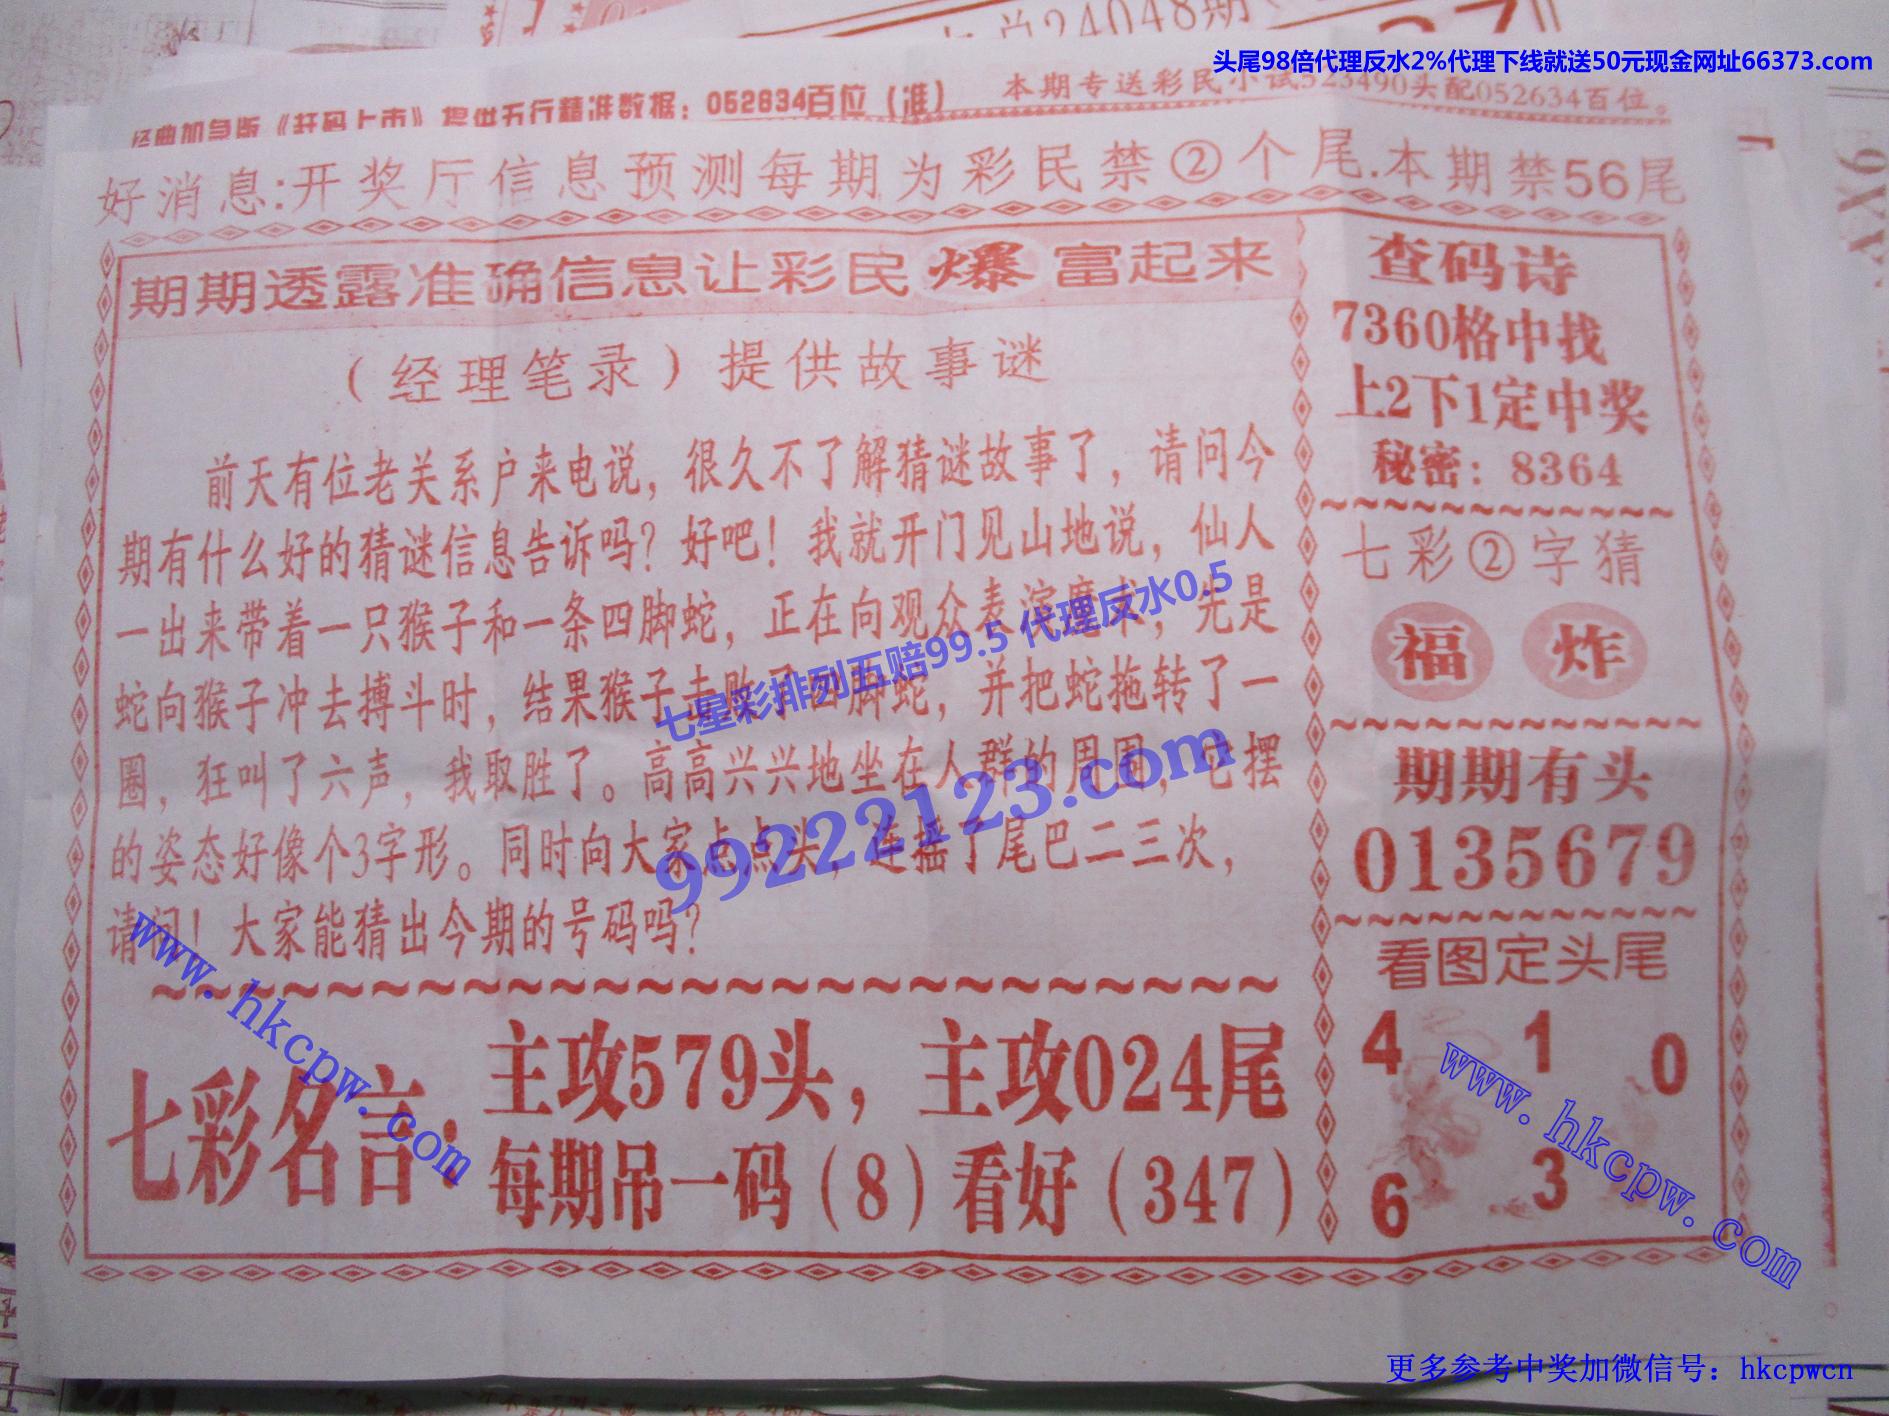 总24048期
头尾98倍代理反水2%代理下线就送50元现金网址66373.com
经典加急版《赶码上市》提供五行精准数据：052634百位（准）
本期专送彩民小试523490头配052634百位。
好消息:开奖厅信息预测每期为彩民禁②个尾.本期禁56尾
期期透露准确信息让彩民爆富起来
（经理笔录）提供故事谜
前天有位老关系户来电说，很久不了解猜谜故事了，请问今
期有什么好的猜谜信息告诉吗？好吧！我就开门见山地说，仙人
一出来带着一只猴子和一条四脚蛇，正在向观众表演魔术，先是
蛇向猴子冲去搏斗时，结果猴子击败了四脚蛇，并把蛇拖转了一
圈，狂叫了六声，我取胜了。高高兴兴地坐在人群的周围，它摆
的姿态好像个3字形。同时向大家点点头，连摇了尾巴二三次，
请问！大家能猜出今期的号码吗？
七彩名言：
主攻579头，主攻024尾
每期吊一码（8）看好（347）
查码诗
7360格中找
上2下1定中奖
秘密：8364
七彩②字猜
福 炸
期期有头
0135679
看图定头尾
4 1 0
6 3
七星彩排列五赔99.5 代理反水0.5
99222123.com
www.hkcpw.com
www.hkcpw.com
更多参考中奖加微信号：hkcpwcn